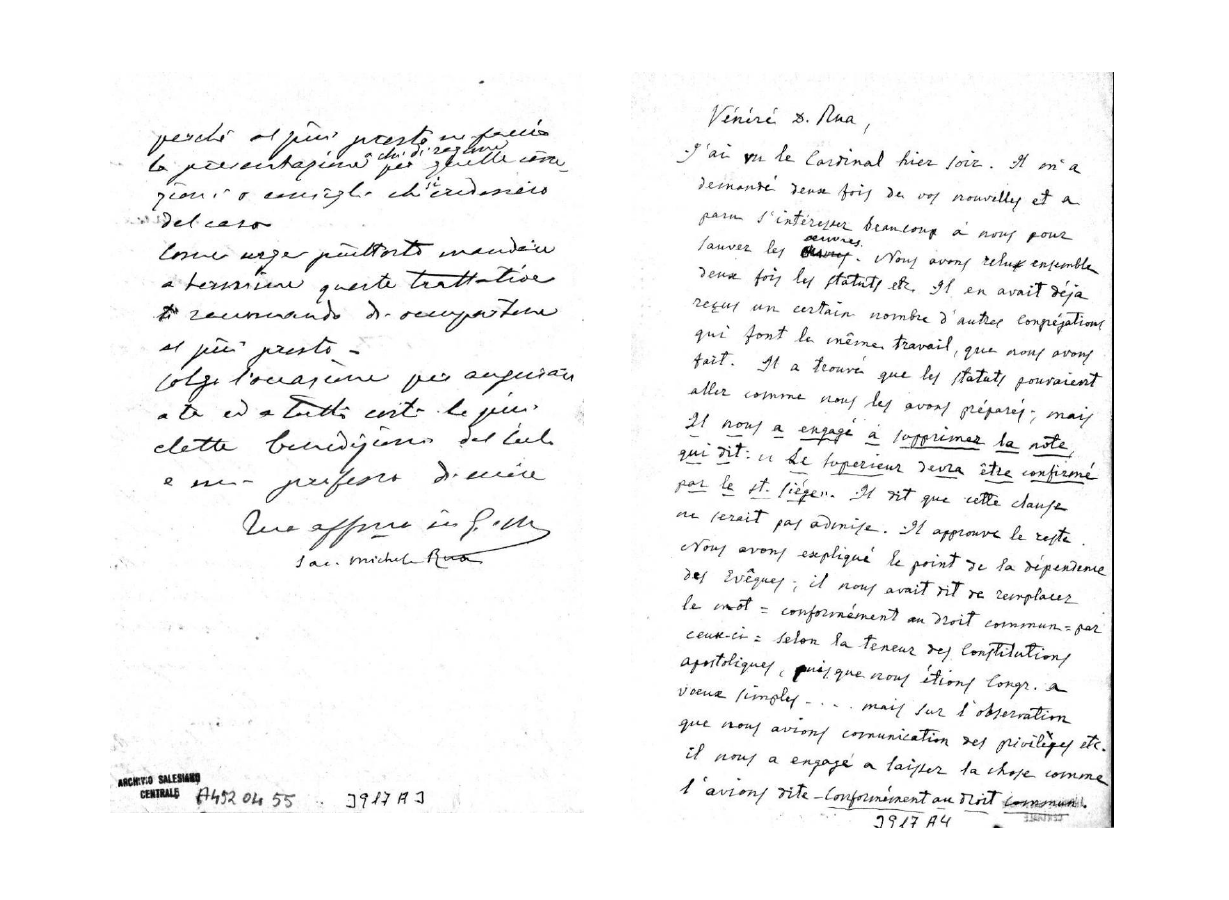 perché al più presto ne faccia
la presentazione a chi di ragione per quelle corre-
zioni o consigli ch' si credessero
del caso
Come urge piuttosto mandare
a termine queste trattative
ti raccomando di occupartene
al più presto -
Colgo l'occasione per augurare
a te ed a tutti costì le più
elette benedizioni del Cielo
e mi professo di cuore
Tuo affmo in G. e M.
Sac. Michele Rua
ARCHIVIO SALESIANO
CENTRALE A452 04 55 3917 A 3
Vénéré D. Rua,
J'ai vu le Cardinal hier soir. Il m'a
demandé deux fois de vos nouvelles et a
paru s'intéresser beaucoup à nous pour
sauver les œuvres. Nous avons relu ensemble
deux fois les statuts etc. Il en avait déja
reçus un certain nombre d'autres Congrégations
qui font le même travail, que nous avons
fait. Il a trouvé que les statuts pouvaient
aller comme nous les avons préparés; mais
Il nous a engagé à supprimer la note,
qui dit: « Le supérieur devra être confirmé
par le st. siége». Il dit que cette clause
ne serait pas admise. Il approuve le reste.
Nous avons expliqué le point de la dépendence
des Evêques; il nous avait dit de remplacer
le mot = conformément au droit commun = par
ceux-ci = selon la teneur des Constitutions
apostoliques, puisque nous étions Congr. a
vœux simples - . . . mais sur l'observation
que nous avions comunication des privilèges etc.
il nous a engagé a laisser la chose comme
l'avions dite - Conformément au droit commun.
3917 A4
CENTRALE